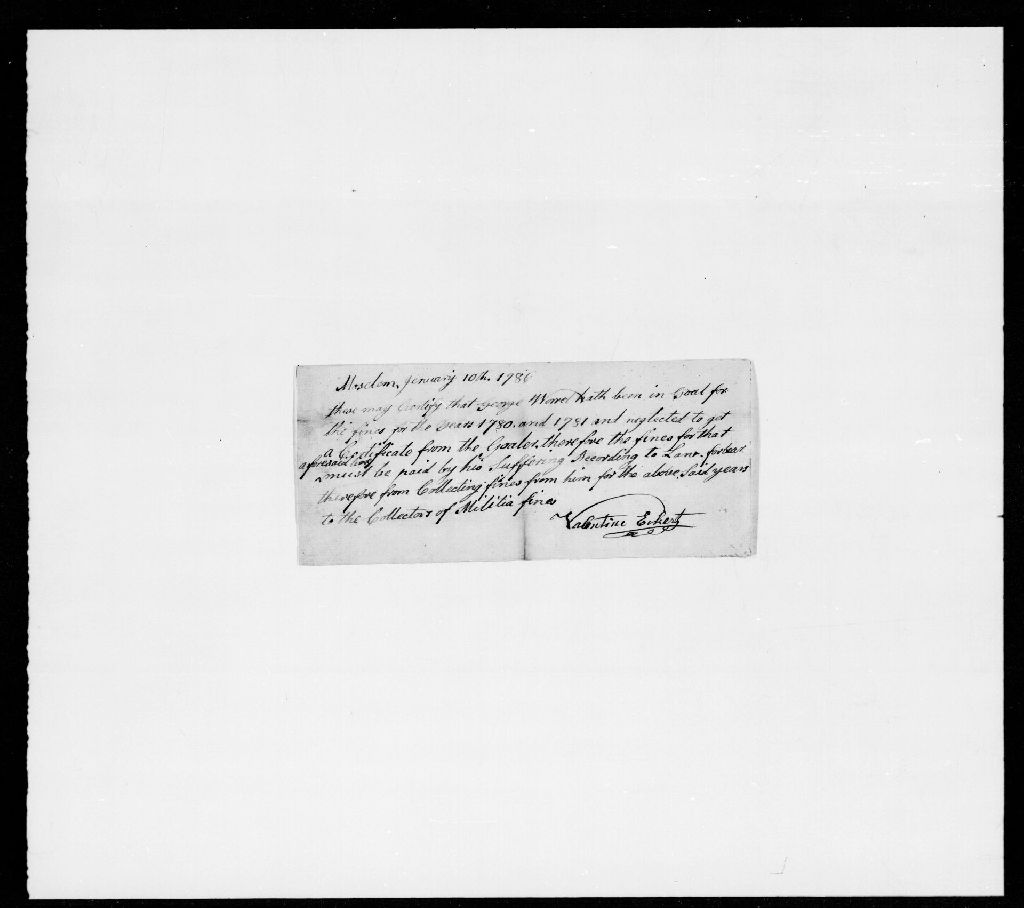 January 10th. 1786
these may Certify that George hath been in Goal for
the fines for the years 1780. and 1781 and neglected to get
a Certificate from the Goaler, therefore the fines for that
aforesaid
must be paid by his Suffering According to Law. forbear
therefore from Collecting fines from him for the above Said years
to the Collectors of Militia fines
Valentine Eckert